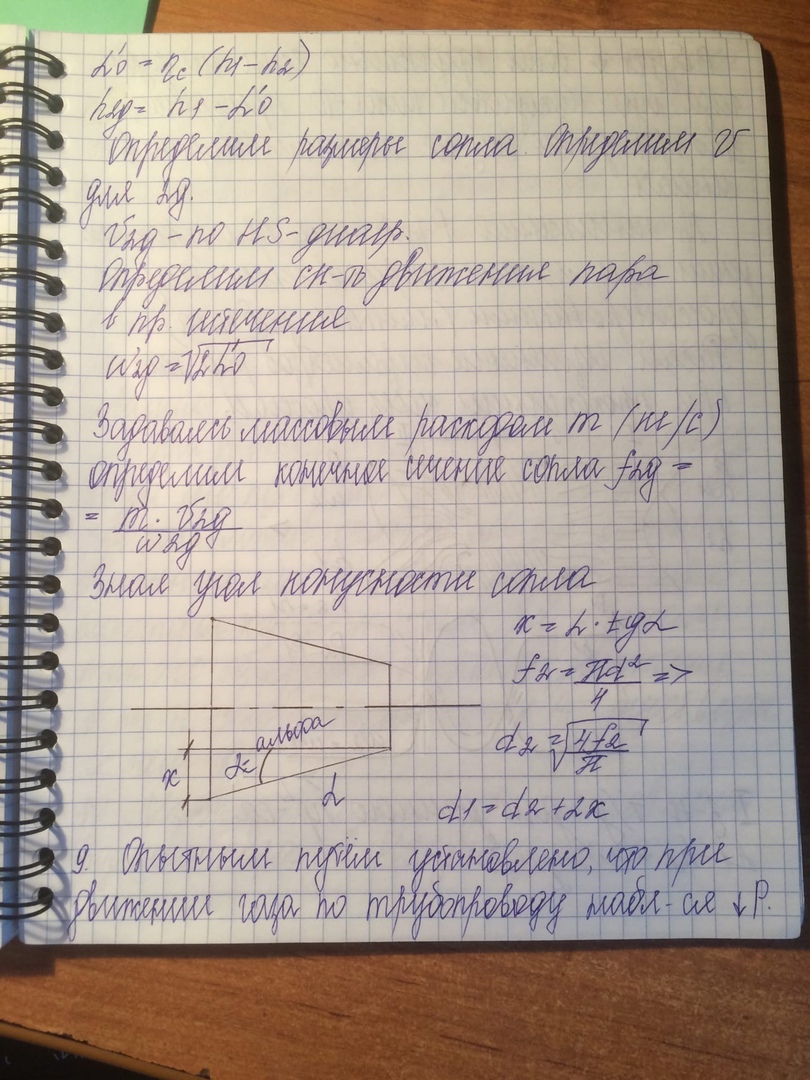 L'o = ηc (h1 - h2)
h2g = h1 - L'o
Определим размеры сопла. Определим v
для 2g.
v2g - по HS-диагр.
Определим ск-ть движения пара
в пр. истечения
w2g = √2L'o
Задаваясь массовым расходом m (кг/с)
определим конечное сечение сопла f2g =
= m · v2g / w2g
Зная угол конусности сопла
x = L · tgα
f2 = πd²/4 =>
альфа
α =
x
d2 = √4f2/π
L
d1 = d2 + 2x
9. Опытным путём установлено, что при
движении газа по трубопроводу набл-ся ↓ P.